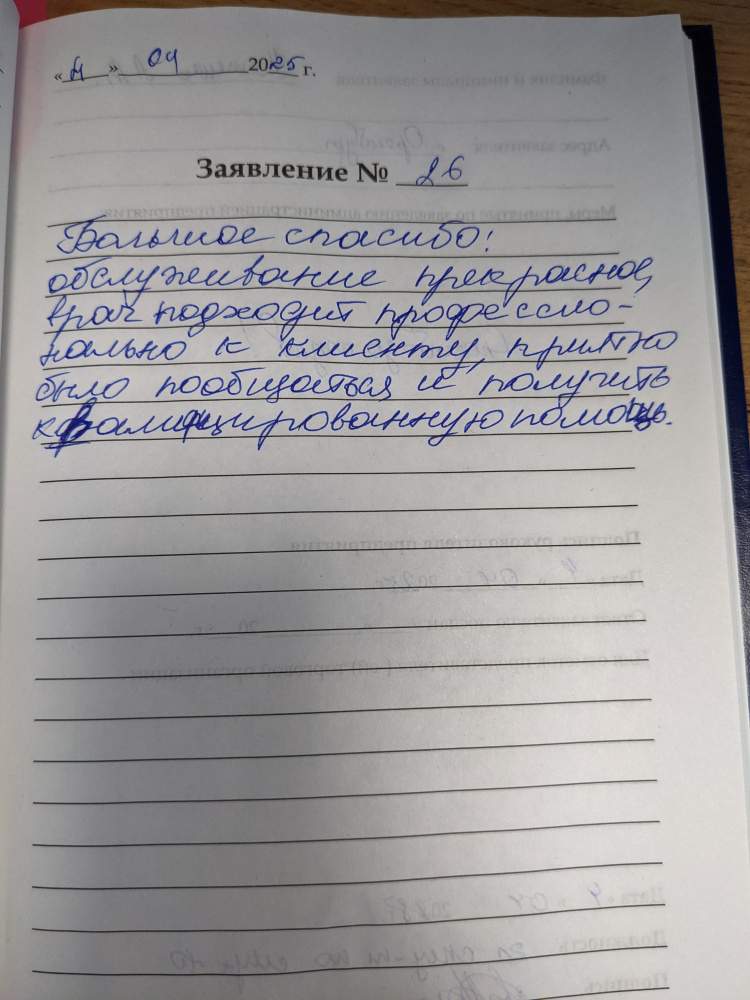 « » 04 2025 г.
Заявление № 26
Большое спасибо!
обслуживание прекрасное,
врач подходит профессио-
нально к клиенту, приятно
было пообщаться и получить
квалифицированную помощь.